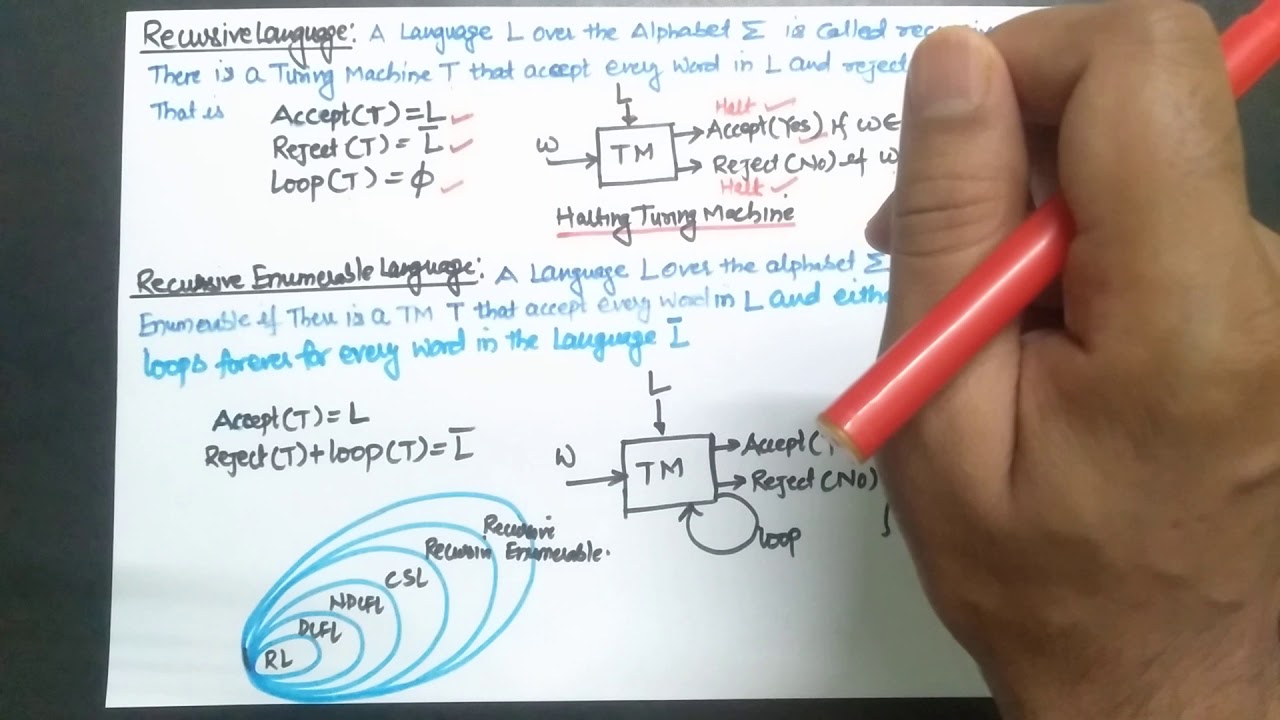 Recursive Language: A Language L over the Alphabet Σ is called
There is a Turing Machine T that accept every word in L and reject
That is
Accept(T) = L
Reject(T) = L̅
Loop(T) = ϕ
L
W
TM
Halt
Accept(Yes) if w∈
Reject(No) if w
Halt
Halting Turing Machine
Recursive Enumerable Language: A Language L over the alphabet Σ
Enumerable if There is a TM T that accept every word in L and
loops forever for every word in the Language L̅
Accept(T) = L
Reject(T)+loop(T) = L̅
L
W
TM
Accept(
Reject(No)
loop
Recursive
Recursiv Enumerable.
CSL
NDCFL
DCFL
RL